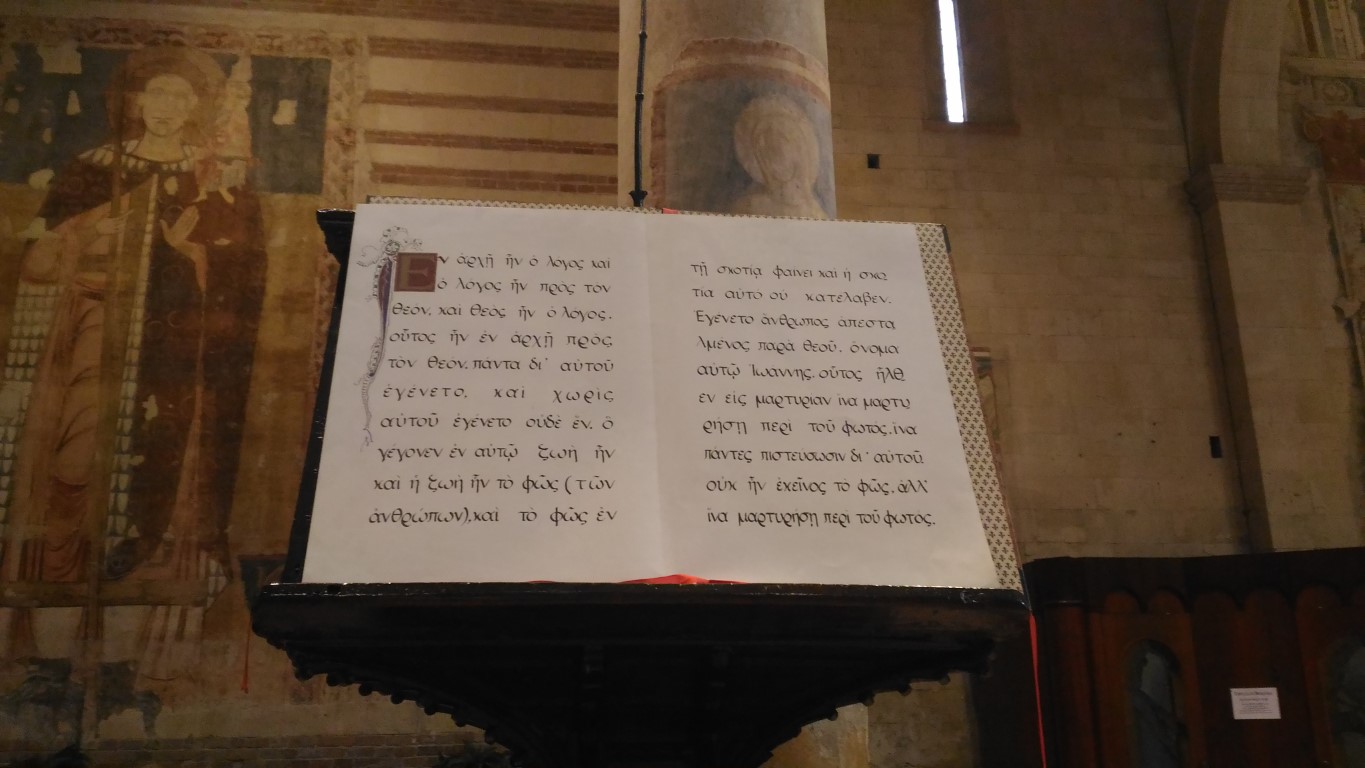 Ἐν ἀρχῇ ἦν ὁ λογος καὶ
ὁ λόγος ἦν πρὸς τὸν
θεόν, καὶ θεὸς ἦν ὁ λογος.
οὗτος ἦν ἐν ἀρχῇ πρὸς
τὸν θεόν. πάντα δι᾽ αὐτοῦ
ἐγένετο, καὶ χωρὶς
αὐτοῦ ἐγένετο οὐδὲ ἕν. ὃ
γέγονεν ἐν αὐτῷ ζωὴ ἦν
καὶ ἡ ζωὴ ἦν τὸ φῶς (τῶν
ἀνθρώπων), καὶ τὸ φῶς ἐν
τῇ σκοτίᾳ φαίνει καὶ ἡ σκο
τία αὐτό οὐ κατέλαβεν.
Ἐγένετο ἄνθρωπος ἀπεστα
λμένος παρὰ θεοῦ, ὄνομα
αὐτῷ Ἰωαννης. οὗτος ἦλθ
εν εἰς μαρτυριαν ἵνα μαρτυ
ρήσῃ περὶ τοῦ φωτός, ἵνα
πάντες πιστεύσωσιν δι᾽ αὐτοῦ.
οὐκ ἦν ἐκεῖνος τὸ φῶς, ἀλλ᾽
ἵνα μαρτυρήσῃ περὶ τοῦ φωτός.